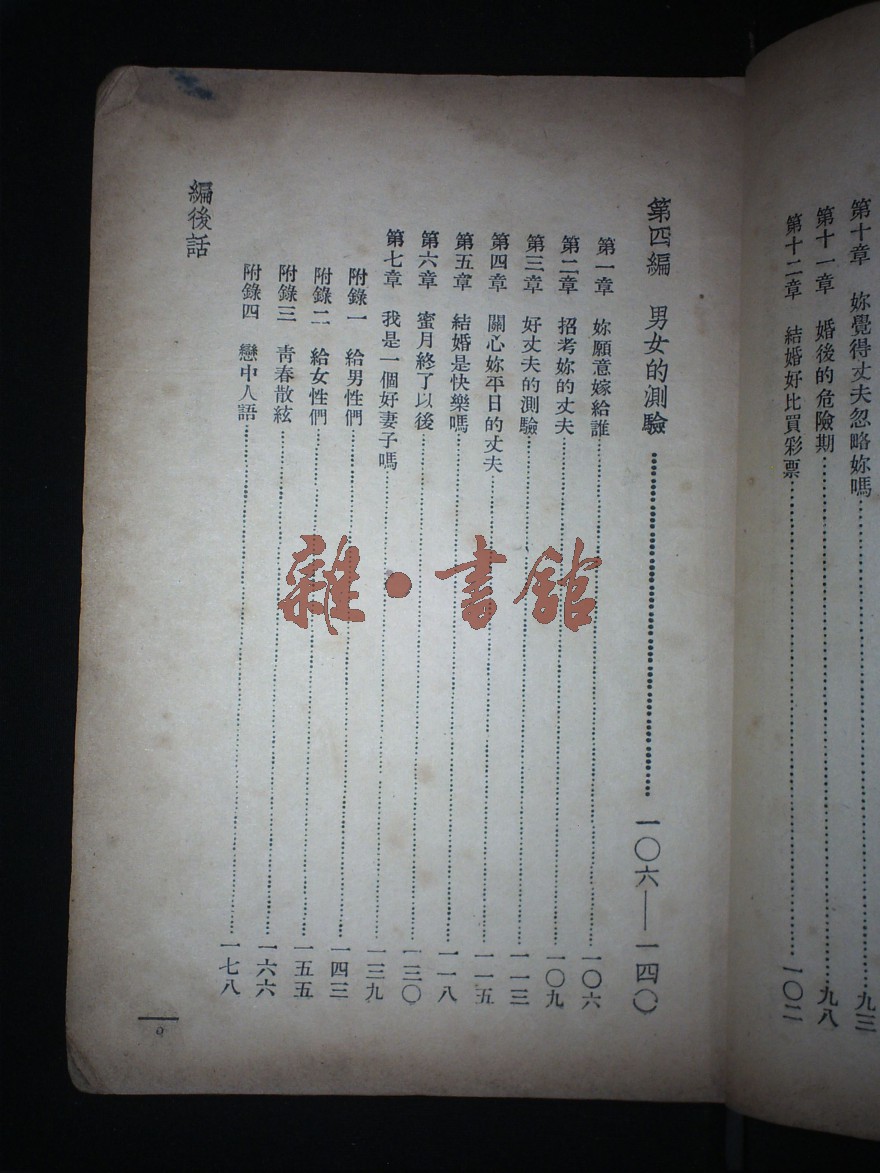 第十章　妳覺得丈夫忽略妳嗎……九三
第十一章　婚後的危險期……九八
第十二章　結婚好比買彩票……一〇二
第四編　男女的測驗……一〇六——一四〇
第一章　妳願意嫁給誰……一〇六
第二章　招考妳的丈夫……一〇九
第三章　好丈夫的測驗……一一三
第四章　關心妳平日的丈夫……一一五
第五章　結婚是快樂嗎……一一八
第六章　蜜月終了以後……一三〇
第七章　我是一個好妻子嗎……一三九
附錄一　給男性們……一四三
附錄二　給女性們……一五五
附錄三　青春散絃……一六六
附錄四　戀中人語……一七八
編後話
9
雜·書館